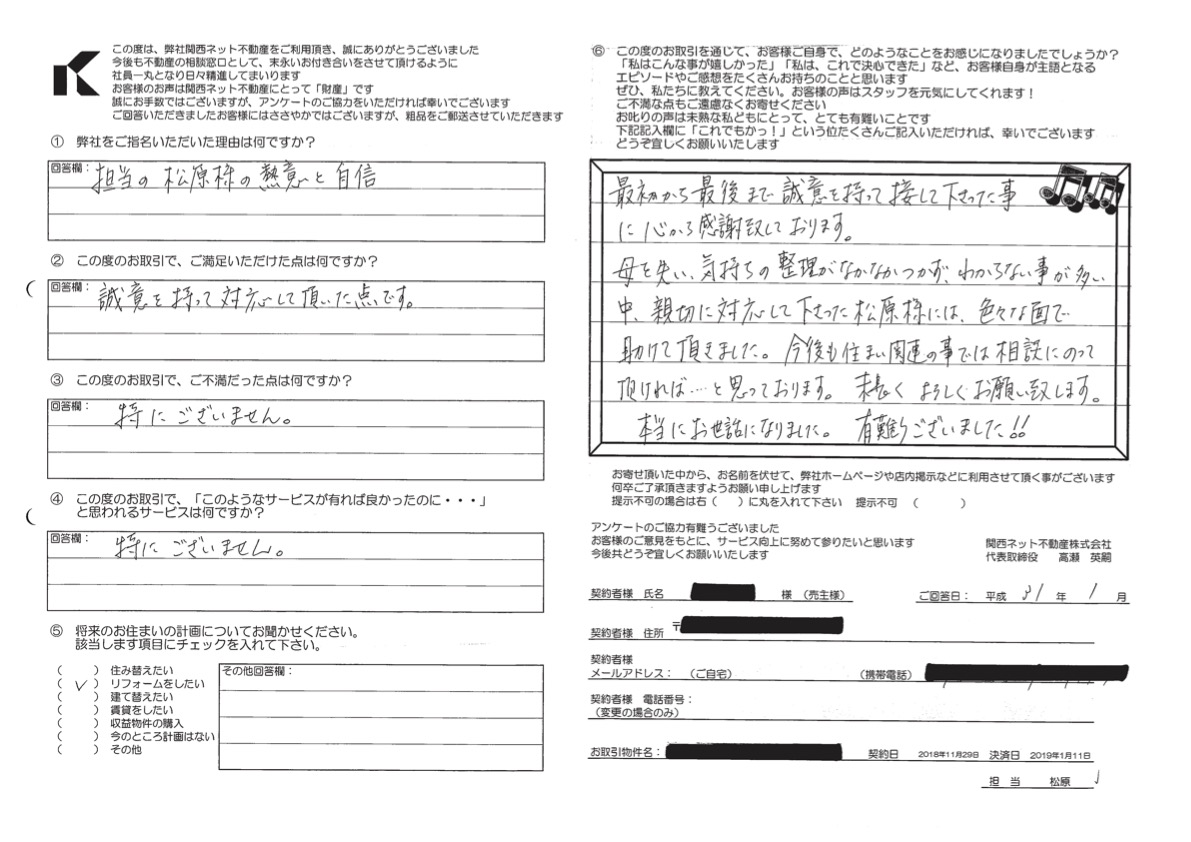 この度は、弊社関西ネット不動産をご利用頂き、誠にありがとうございました
今後も不動産の相談窓口として、末永いお付き合いをさせて頂けるように
社員一丸となり日々精進してまいります
お客様のお声は関西ネット不動産にとって「財産」です
誠にお手数ではございますが、アンケートのご協力をいただければ幸いでございます
ご回答いただきましたお客様にはささやかではございますが、粗品をご郵送させていただきます
① 弊社をご指名いただいた理由は何ですか？
回答欄： 担当の 松原様の熱意と自信
② この度のお取引で、ご満足いただけた点は何ですか？
回答欄： 誠意を持って対応して頂いた点です。
③ この度のお取引で、ご不満だった点は何ですか？
回答欄： 特にございません。
④ この度のお取引で、「このようなサービスが有れば良かったのに・・・」
と思われるサービスは何ですか？
回答欄： 特にございません。
⑤ 将来のお住まいの計画についてお聞かせください。
該当します項目にチェックを入れて下さい。
（　　） 住み替えたい
（ ✓ ） リフォームをしたい
（　　） 建て替えたい
（　　） 賃貸をしたい
（　　） 収益物件の購入
（　　） 今のところ計画はない
（　　） その他
その他回答欄：
⑥ この度のお取引を通じて、お客様ご自身で、どのようなことをお感じになりましたでしょうか？
「私はこんな事が嬉しかった」「私は、これで決心できた」など、お客様自身が主語となる
エピソードやご感想をたくさんお持ちのことと思います
ぜひ、私たちに教えてください。お客様の声はスタッフを元気にしてくれます！
ご不満な点もご遠慮なくお寄せください
お叱りの声は未熟な私どもにとって、とても有難いことです
下記記入欄に「これでもかっ！」という位たくさんご記入いただければ、幸いでございます
どうぞ宜しくお願いいたします
最初から最後まで誠意を持って接して下さった事
に心から感謝致しております。
母を失い、気持ちの整理がなかなかつかず、わからない事が多い
中、親切に対応して下さった松原様には、色々な面で
助けて頂きました。今後も住まい関連の事では相談にのって
頂ければ…と思っております。末長くよろしくお願い致します。
本当にお世話になりました。 有難うございました!!
お寄せ頂いた中から、お名前を伏せて、弊社ホームページや店内掲示などに利用させて頂く事がございます
何卒ご了承頂きますようお願い申し上げます
提示不可の場合は右（　　）に丸を入れて下さい 提示不可（　　）
アンケートのご協力有難うございました
お客様のご意見をもとに、サービス向上に努めて参りたいと思います
今後共どうぞ宜しくお願いいたします
関西ネット不動産株式会社
代表取締役 高瀬 英嗣
契約者様 氏名 様 （売主様） ご回答日： 平成 31 年 1 月
契約者様 住所 〒
契約者様
メールアドレス： （ご自宅） （携帯電話）
契約者様 電話番号：
（変更の場合のみ）
お取引物件名： 契約日 2018年11月29日 決済日 2019年1月11日
担 当 松原